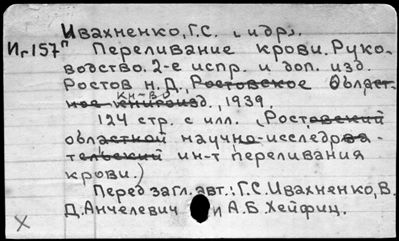 Ивахненко, Г.С. [и др].
Иг157п Переливание крови. Руко-
водство. 2-е испр. и доп. изд.
Ростов н.Д., Ростовское област-
Кн-во
ное книгоизд., 1939.
124 стр. с илл. (Ростовский
областной научно-исследова-
тельский ин-т переливания
крови.)
Перед загл. авт.: Г.С. Ивахненко, В.
Д. Анчелевич и А.Б. Хейфиц.
X